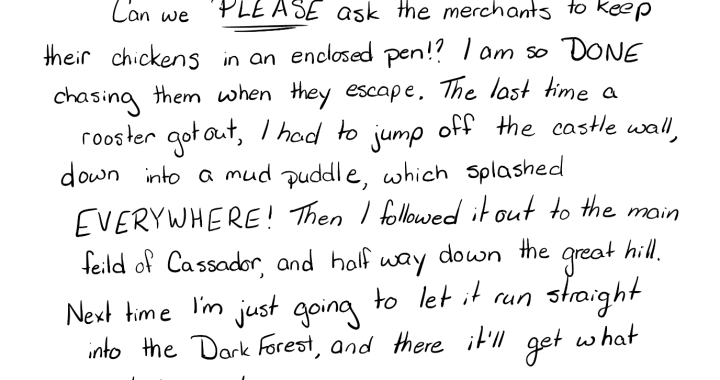 Can we PLEASE ask the merchants to keep
their chickens in an enclosed pen!? I am so DONE
chasing them when they escape. The last time a
rooster got out, I had to jump off the castle wall,
down into a mud puddle, which splashed
EVERYWHERE! Then I followed it out to the main
feild of Cassador, and half way down the great hill.
Next time I'm just going to let it run straight
into the Dark Forest, and there it'll get what